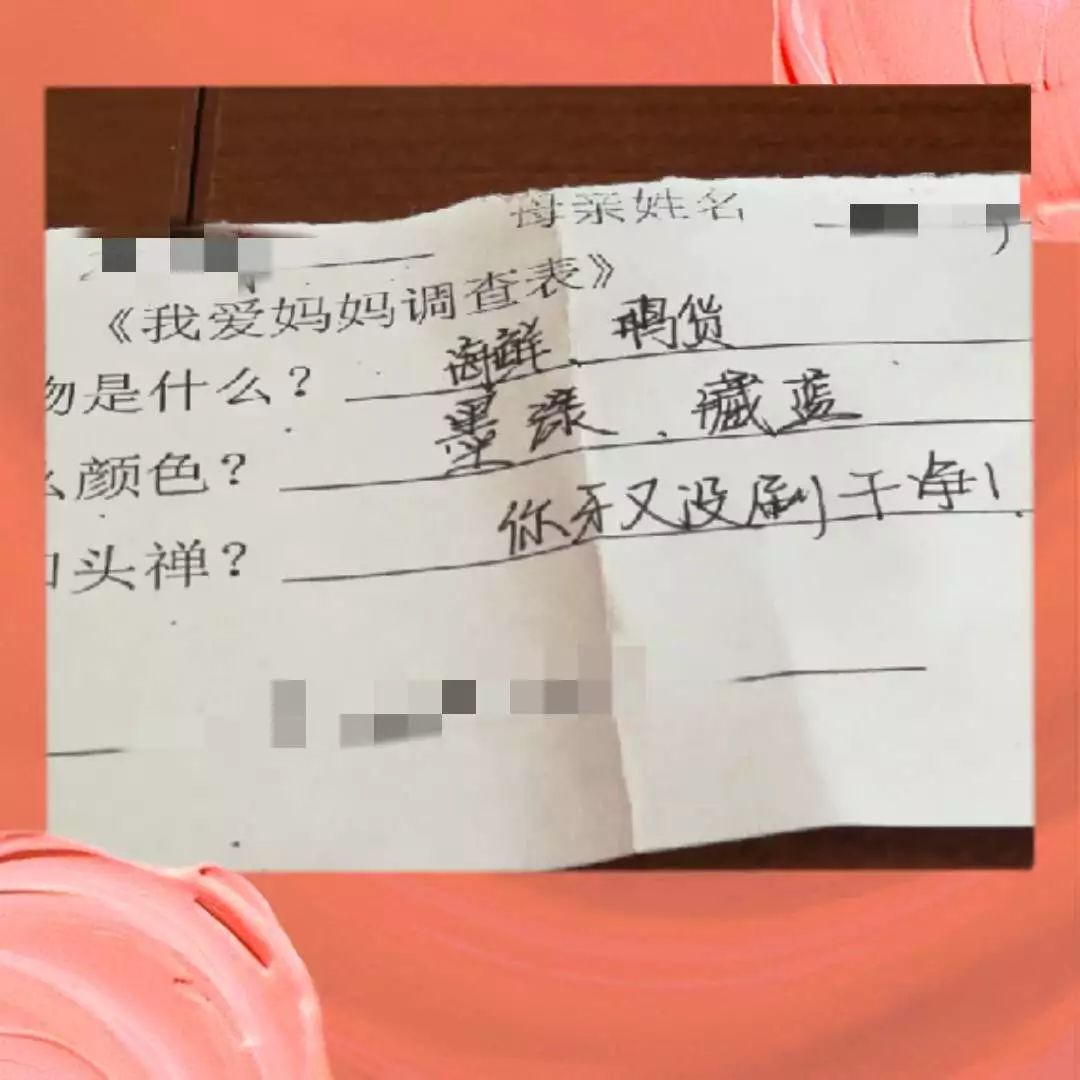 母亲姓名
《我爱妈妈调查表》
物是什么? 海鲜、鸭货
么颜色? 墨绿、藏蓝
口头禅? 你牙又没刷干净!